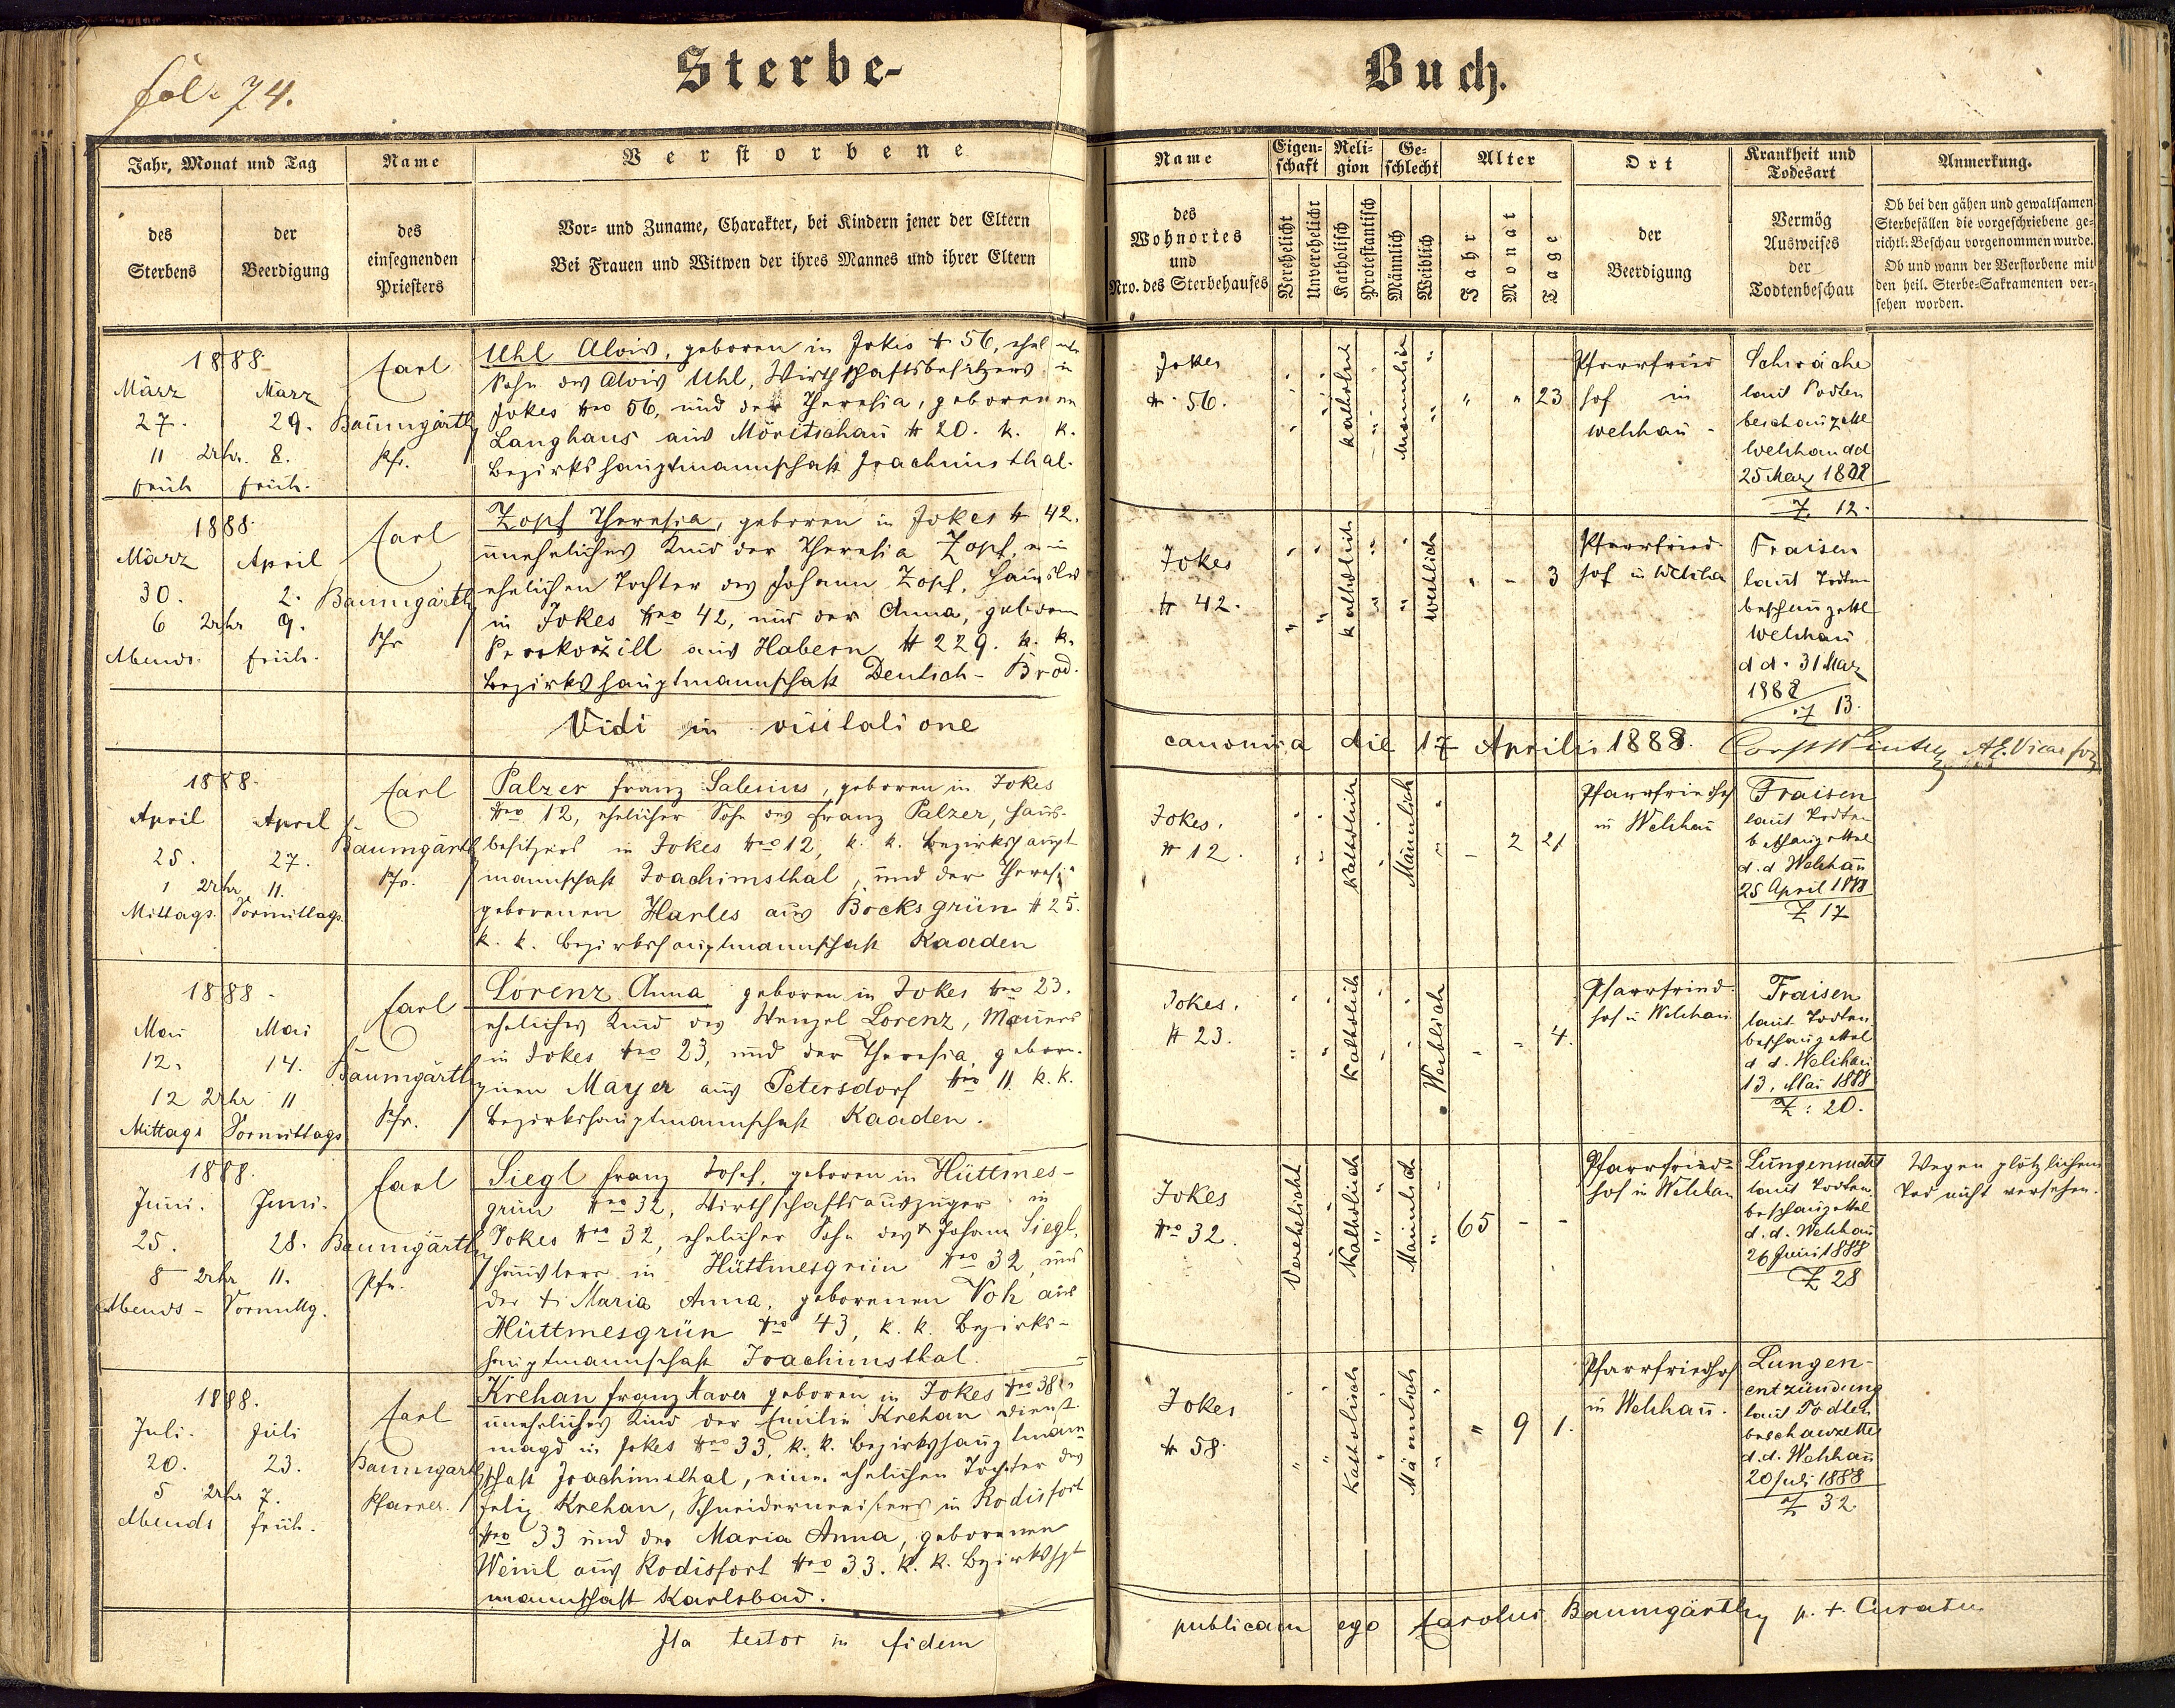 fol. 74.
Sterbe-
Buch.
Jahr, Monat und Tag
Name
Verstorbene
des Sterbens
der Beerdigung
des einsegnenden Priesters
Vor- und Zuname, Charakter, bei Kindern jener der Eltern
Bei Frauen und Witwen der ihres Mannes und ihrer Eltern
Name
Eigenschaft
Religion
Geschlecht
Alter
Ort
Krankheit und Todesart
Anmerkung.
des Wohnortes und Nro. des Sterbehauses
Verehelicht
Unverehelicht
Katholisch
Protestantisch
Männlich
Weiblich
Jahr
Monat
Tage
der Beerdigung
Vermög Ausweises der Todtenbeschau
Ob bei den gähen und gewaltsamen
Sterbefällen die vorgeschriebene ge-
richtl. Beschau vorgenommen wurde.
Ob und wann der Verstorbene mit
den heil. Sterbe-Sakramenten ver-
sehen worden.
1888
März März
27. 29.
11 Uhr. 8.
früh früh.
Carl
Baumgärtl
Pfr.
Uhl Alois, geboren in Jokes # 56, ehel
Sohn des Alois Uhl, Wirthschaftsbesitzers in
Jokes Nro 56, und der Theresia, geborenen
Langhans aus Möritschau # 20. k. k.
Bezirkshauptmannschaft Joachimsthal.
Jokes
# 56.
katholisch
Maennlich
" " 23
Pfarrfried
hof in
Welchau -
Schwäche
laut Todten
beschauzettl
Welchau dd
25 März 1888
Z. 12.
1888
März April
30. 2.
6 Uhr 9.
Abends. früh.
Carl
Baumgärtl
Pfr
Zopf Theresia, geboren in Jokes # 42.
unehliches Kind der Theresia Zopf,
ehelichen Tochter des Johann Zopf, Häuslers
in Jokes Nro 42, und der Anna, geboren
aus Habern # 229. k. k.
Bezirkshauptmannschaft Deutsch-Brod.
Jokes
# 42.
katholisch
weiblich
" - 3
Pfarrfried-
hof in Welchau
Fraisen
laut Todten
beschauzettl
Welchau
d d. 31 März
1888
Z 13.
Vidi in visitatione
canonica die 17 Aprilis 1888.
1888.
April April
25. 27.
1 Uhr 11.
Mittags. Vormittags.
Carl
Baumgärtl
Pfr.
Palzer Franz Salesius, geboren in Jokes
Nro 12, ehelicher Sohn des Franz Palzer, Haus-
besitzers in Jokes Nro 12, k. k. Bezirkshaupt
mannschaft Joachimsthal, und der Theresia
geborenen Harles aus Bocksgrün # 25.
k. k. Bezirkshauptmannschaft Kaaden
Jokes.
# 12.
Katholisch
Männlich
- 2 21
Pfarrfriedhof
in Welchau
Fraisen
laut Todten
beschauzettel
d. d Welchau
25 April 1888
Z 17
1888.
Mai Mai
12. 14.
12 Uhr 11
Mittags Vormittags
Carl
Baumgärtl
Pfr.
Lorenz Anna geboren in Jokes Nro 23.
eheliches Kind des Wenzel Lorenz, Maurers
in Jokes Nro 23, und der Theresia, gebore-
nen Mayer aus Petersdorf Nro 11. k. k.
Bezirkshauptmannschaft Kaaden.
Jokes.
# 23.
Katholisch
Weiblich
- - 4.
Pfarrfried-
hof in Welchau
Fraisen
laut Todten
beschauzettel
d d. Welchau
13. Mai 1888
Z: 20.
1888.
Juni. Juni.
25. 28.
8 Uhr 11.
Abends - Vormittg.
Carl
Baumgärtl
Pfr.
Siegl Franz Josef, geboren in Hüttmes-
grün Nro 32, Wirthschaftsauszüger in
Jokes Nro 32, ehelicher Sohn des + Johann Siegl,
Häuslers in Hüttmesgrün Nro 32, und
der + Maria Anna, geborenen Voh aus
Hüttmesgrün Nro 43, k. k. Bezirks-
hauptmannschaft Joachimsthal.
Jokes
Nro 32.
Verehelicht
Katholisch
Männlich
65 - -
Pfarrfried-
hof in Welchau
Lungensucht
laut Todten
beschauzettel
d. d. Welchau
26 Juni 1888
Z 28
Wegen plötzlichem
Tod nicht versehen.
1888.
Juli. Juli
20. 23.
5 Uhr 7.
Abends früh.
Carl
Baumgärtl
Pfarrer.
Krehan Franz Xaver geboren in Jokes Nro 38,
unehliches Kind der Emilie Krehan Dienst-
magd in Jokes Nro 33, k. k. Bezirkshauptmann
schaft Joachimsthal, einer ehelichen Tochter des
Felix Krehan, Schneidermeisters in Rodisfort
Nro 33 und der Maria Anna, geborenen
Weinl aus Rodisfort Nro 33. k. k. Bezirkshpt
mannschaft Karlsbad.
Jokes
# 58.
Katholisch
Männlich
" 9 1.
Pfarrfriedhof
in Welchau.
Lungen-
entzündung
laut Todten
beschauzettel
d. d. Welchau
20 Juli 1888
Z 32.
Ita testor in fidem
publicam ego Carolus Baumgärtl p. t. Curatus